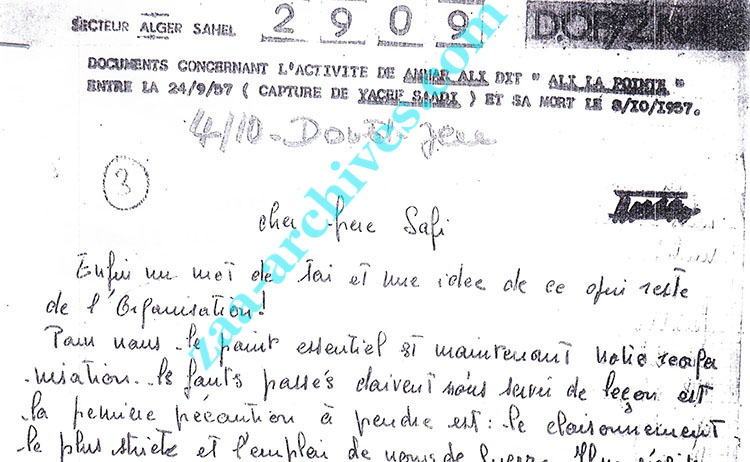 SECTEUR ALGER SAHEL
2 9 0 9
DOCUMENTS CONCERNANT L'ACTIVITE DE AMMAR ALI DIT " ALI LA POINTE "
ENTRE LA 24/9/57 ( CAPTURE DE YACEF SAADI ) ET SA MORT LE 8/10/1957.
4/10 - Double jeu
3
Cher frere Safi
Enfin un mot de toi et une idee de ce qui reste
de l'Organisation!
Pour nous le point essentiel est maintenant notre reorga
nisation. les fauts passés doivent nous servir de leçon et
la première précaution à prendre est: le cloisonnement
le plus stricte et l'emploi de noms de guerre.
zaa-archives.com